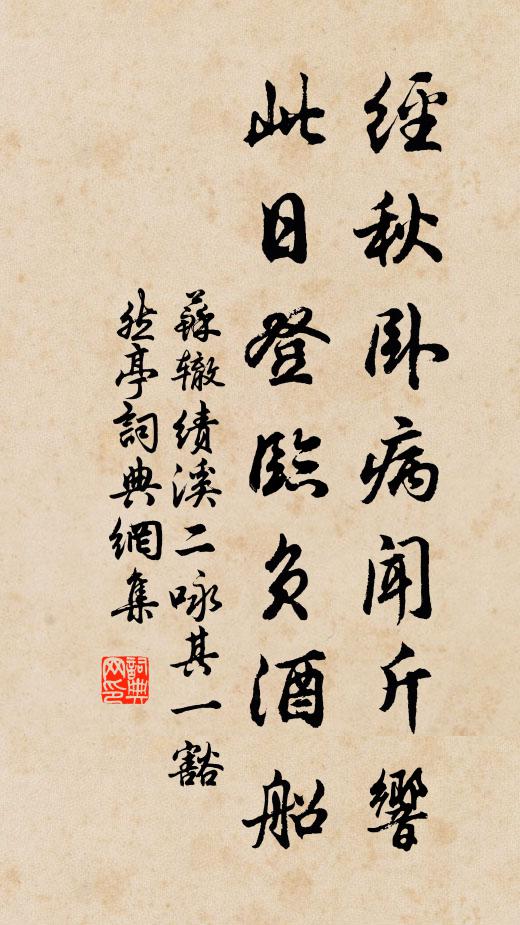 經秋卧病聞斤響
此日登臨負酒船
蘇辙績溪二咏其一豁
然亭詞典網集
詞典
网印